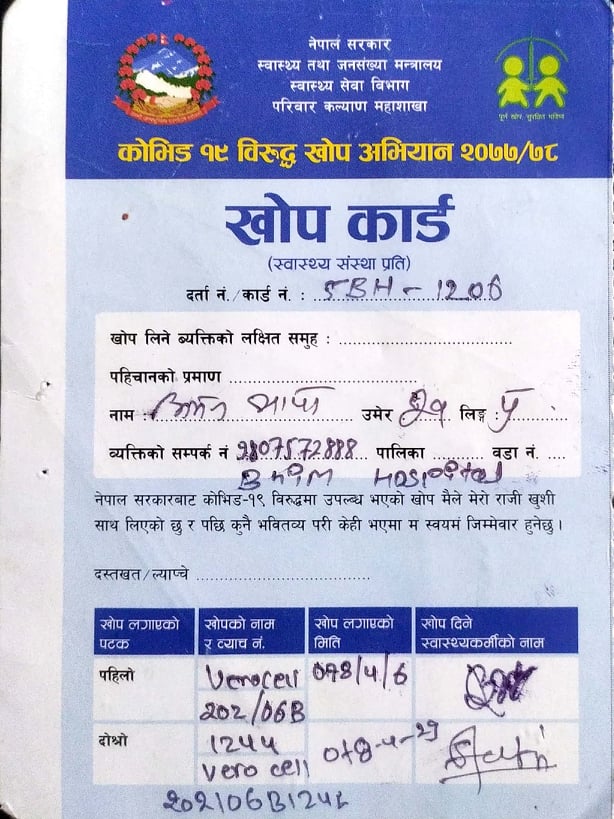 नेपाल सरकार
स्वास्थ्य तथा जनसंख्या मन्त्रालय
स्वास्थ्य सेवा विभाग
परिवार कल्याण महाशाखा
पूर्ण खोप, सुरक्षित भविष्य
कोभिड १९ विरुद्ध खोप अभियान २०७७/७८
खोप कार्ड
(स्वास्थ्य संस्था प्रति)
दर्ता नं./कार्ड नं. : SBH - 1206
खोप लिने ब्यक्तिको लक्षित समुह :
पहिचानको प्रमाण
नाम : थापा उमेर लिङ्ग : पु
व्यक्तिको सम्पर्क नं 9807572888 पालिका वडा नं.
Bhim Hospital
नेपाल सरकारबाट कोभिड-१९ विरुद्धमा उपल्ब्ध भएको खोप मैले मेरो राजी खुशी
साथ लिएको छु र पछि कुनै भवितव्य परी केही भएमा म स्वयमं जिम्मेवार हुनेछु ।
दस्तखत/ल्याप्चे
खोप लगाएको पटक खोपको नाम र व्याच नं. खोप लगाएको मिति खोप दिने स्वास्थ्यकर्मीको नाम
पहिलो Verocell 078/4/6
202106B
दोश्रो 1244 078-4-29
vero cell
202106B124